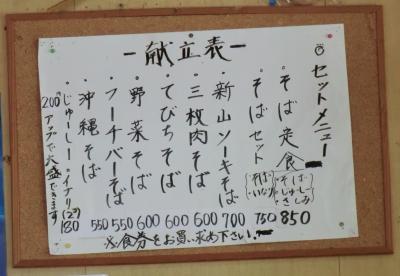 -献立表-
◦セットメニュー
・そば定食(そば じゅーしー さしみ) 850
・そばセット(そば いなり) 750
・新山ソーキそば 700
・三枚肉そば 600
・てびちそば 600
・野菜そば 600
・フーチバーそば 550
・沖縄そば 550
・じゅーしー・イナリ(2ヶ) 180
200円アップで大盛できます
※食券をお買い求め下さい。